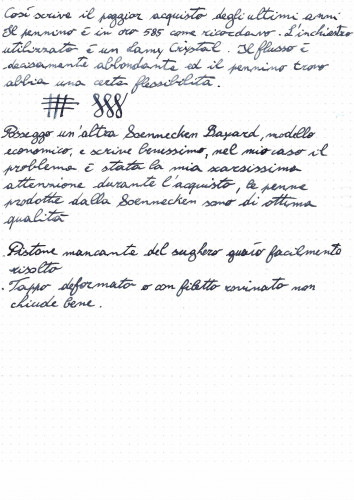 Così scrive il peggior acquisto degli ultimi anni
Il pennino è in oro 585 come ricordavo. L'inchiostro
utilizzato è un Lamy Crystal. Il flusso è
decisamente abbondante ed il pennino trovo
abbia una certa flessibilità.
Posseggo un'altra Soennecken Bayard, modello
economico, e scrive benissimo, nel mio caso il
problema è stata la mia scarsissima
attenzione durante l'acquisto, le penne
prodotte dalla Soennecken sono di ottima
qualità
. Pistone mancante del sughero guaio facilmente
risolto
. Tappo deformato o con filetto rovinato non
chiude bene.